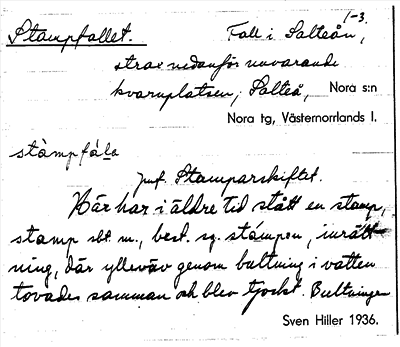 1-3.
Stampfallet. Fall i Salteån,
strax nedanför nuvarande
kvarnplatsen, Salteå, Nora s:n
Nora tg, Västernorrlands l.
stàmpfála
jmf. Stamparskiftet.
Här har i äldre tid stått en stamp,
stamp sbt. m., best. sg. stámpen, inrätt-
ning, där ylleväv genom bultning i vatten
tovades samman och blev tjockt. Bultningen
Sven Hiller 1936.